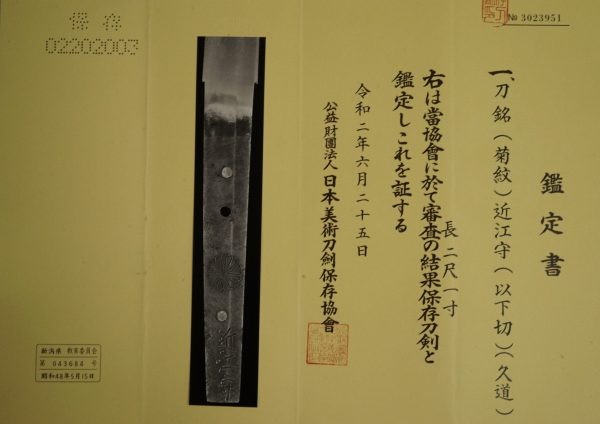 № 3023951
鑑定書
一、刀 銘（菊紋）近江守（以下切）（久道）
長 二尺一寸
右は當協會に於て審査の結果保存刀剣と
鑑定しこれを証する
令和二年六月二十五日
公益財團法人 日本美術刀劍保存協會
近江守
保存
02202003
新潟県 教育委員会
第 043684 号
昭和48年5月15日